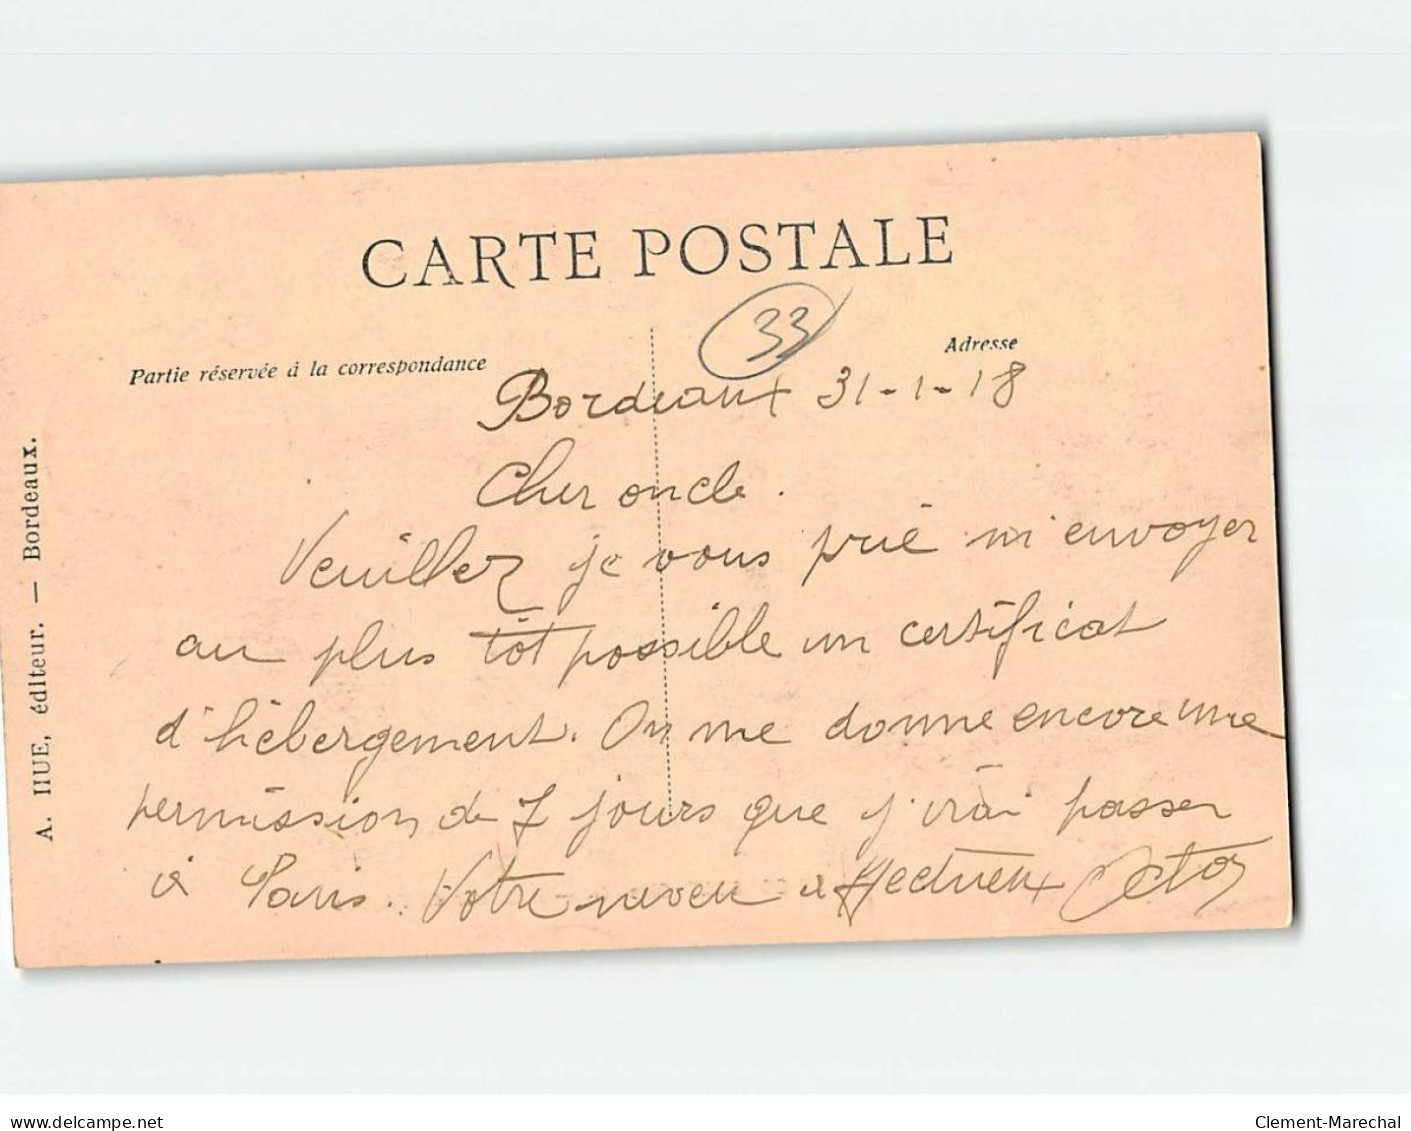 CARTE POSTALE
33
Partie réservée à la correspondance
Adresse
Bordeaux 31-1-18
Cher oncle.
Veuillez je vous prie m'envoyer
au plus tôt possible un certificat
d'hébergement. On me donne encore une
permission de 7 jours que j'irai passer
à Paris. Votre neveu affectueux
A. HUE, éditeur. — Bordeaux.
www.delcampe.net
Clement-Marechal